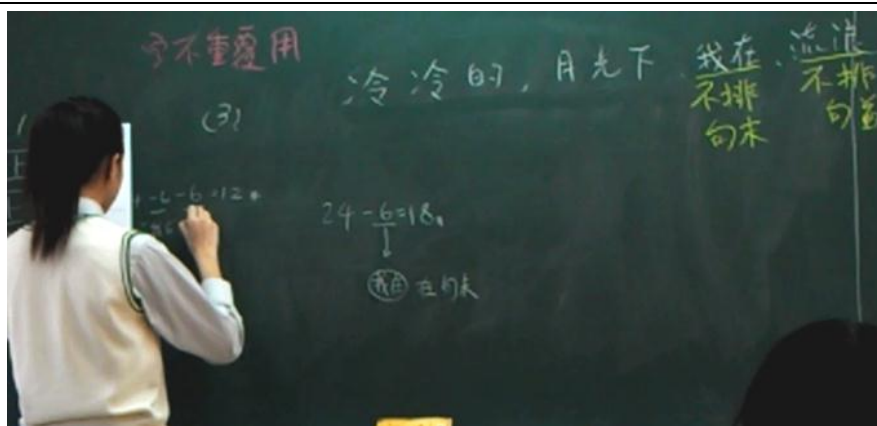 字不重覆用
冷冷的,月光下、我在、流浪
不排 不排
句末 句首
(3)
-6-6=12
24-6=18
我在 在句末